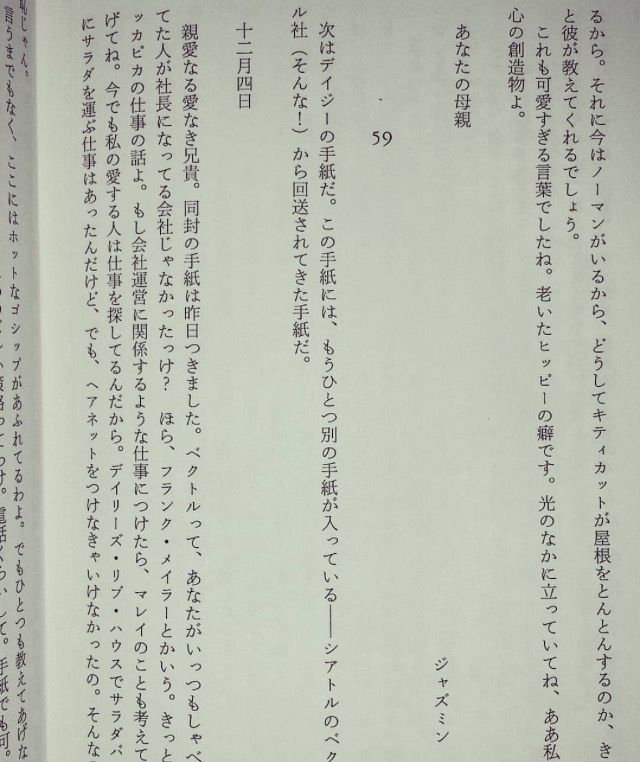 るから。それに今はノーマンがいるから、どうしてキティカットが屋根をとんとんするのか、き
と彼が教えてくれるでしょう。
これも可愛すぎる言葉でしたね。老いたヒッピーの癖です。光のなかに立っていてね、ああ私
心の創造物よ。
ジャズミン
あなたの母親
59
次はデイジーの手紙だ。この手紙には、もうひとつ別の手紙が入っている――シアトルのベク
ル社（そんな！）から回送されてきた手紙だ。
十二月四日
親愛なる愛なき兄貴。同封の手紙は昨日つきました。ベクトルって、あなたがいっつもしゃべ
てた人が社長になってる会社じゃなかったっけ？　ほら、フランク・メイラーとかいう。きっと
ッカピカの仕事の話よ。もし会社運営に関係するような仕事につけたら、マレイのことも考えて
げてね。今でも私の愛する人は仕事を探してるんだから。デイリーズ・リブ・ハウスでサラダバ
にサラダを運ぶ仕事はあったんだけど、でも、ヘアネットをつけなきゃいけなかったの。そんな
恥じゃん。
言うまでもなく、ここにはホットなゴシップがあふれてるわよ。でもひとつも教えてあげな
電話くらいして。手紙でも可。